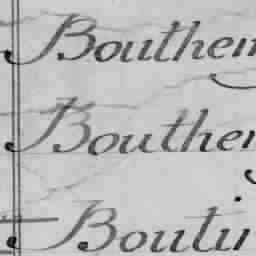 Bouthem
Bouther
Boutin